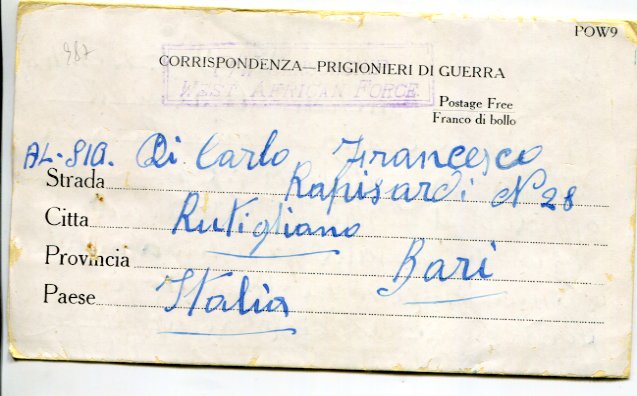 POW9
987
CORRISPONDENZA—PRIGIONIERI DI GUERRA
WEST AFRICAN FORCE
Postage Free
Franco di bollo
AL-SIG. Di Carlo Francesco
Strada Rapisardi N 28
Citta Rutigliano
Provincia Bari
Paese Italia